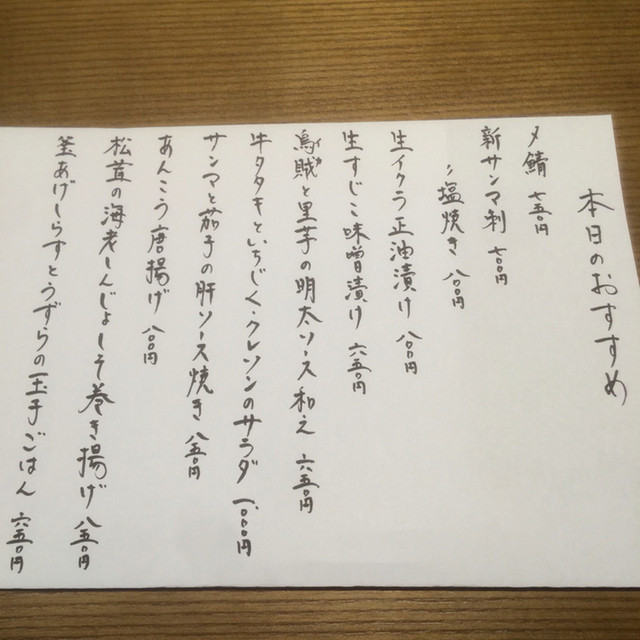 本日のおすすめ
〆鯖 七五〇円
新サンマ刺 七〇〇円
〃塩焼き 八〇〇円
生イクラ正油漬け 八〇〇円
生すじこ味噌漬け 六五〇円
烏賊と里芋の明太ソース和え 六五〇円
牛タタキといちじく・クレソンのサラダ 一、〇〇〇円
サンマと茄子の肝ソース焼き 八五〇円
あんこう唐揚げ 八〇〇円
松茸の海老しんじょしそ巻き揚げ 八五〇円
釜あげしらすとうずらの玉子ごはん 六五〇円